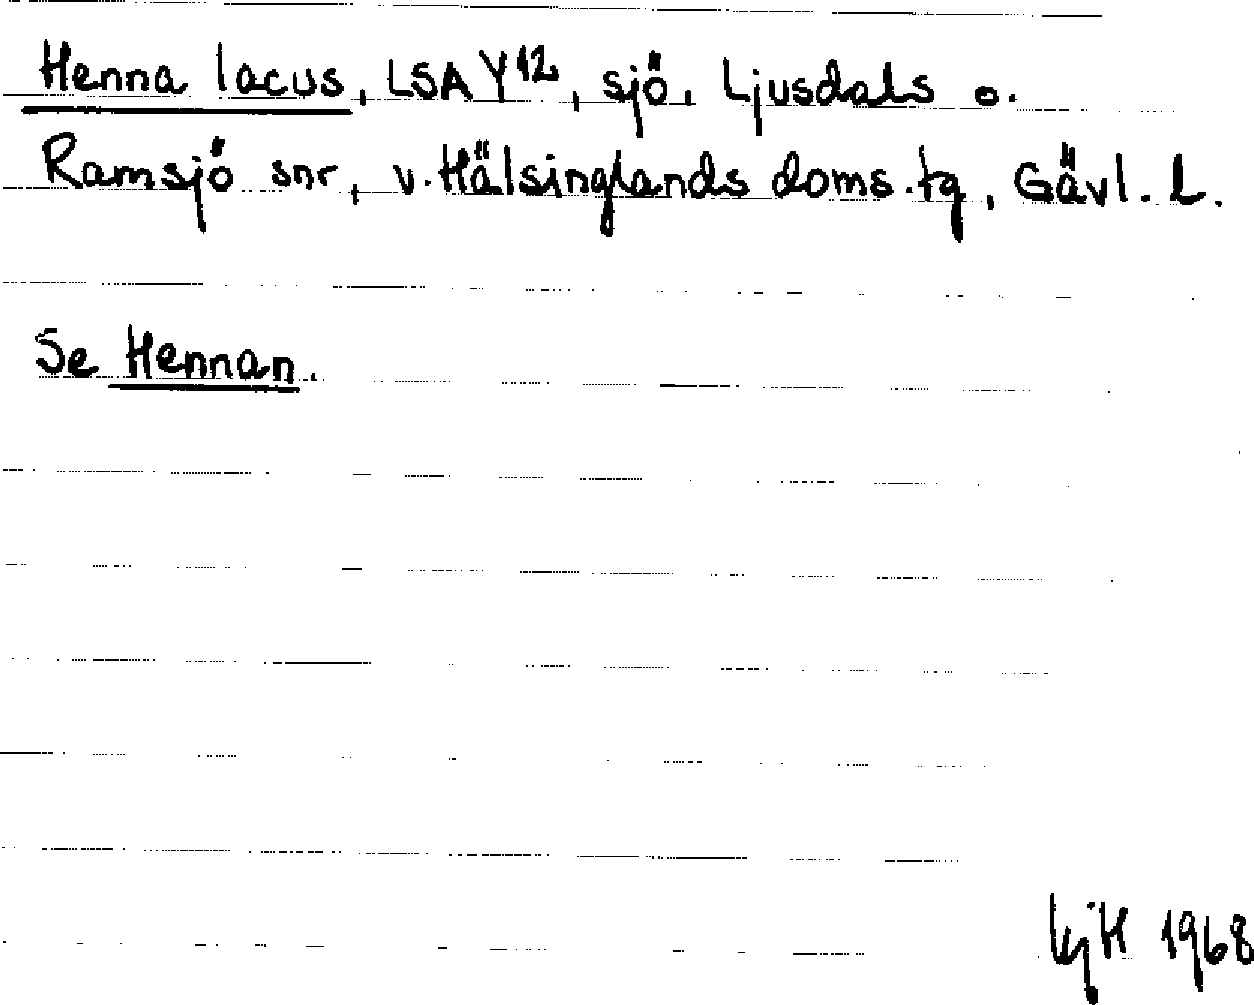 Henna lacus, LSA Y12, sjö, Ljusdals o.
Ramsjö snr, v. Hälsinglands doms.tg, Gävl. L.
Se Hennan.
KjH 1968